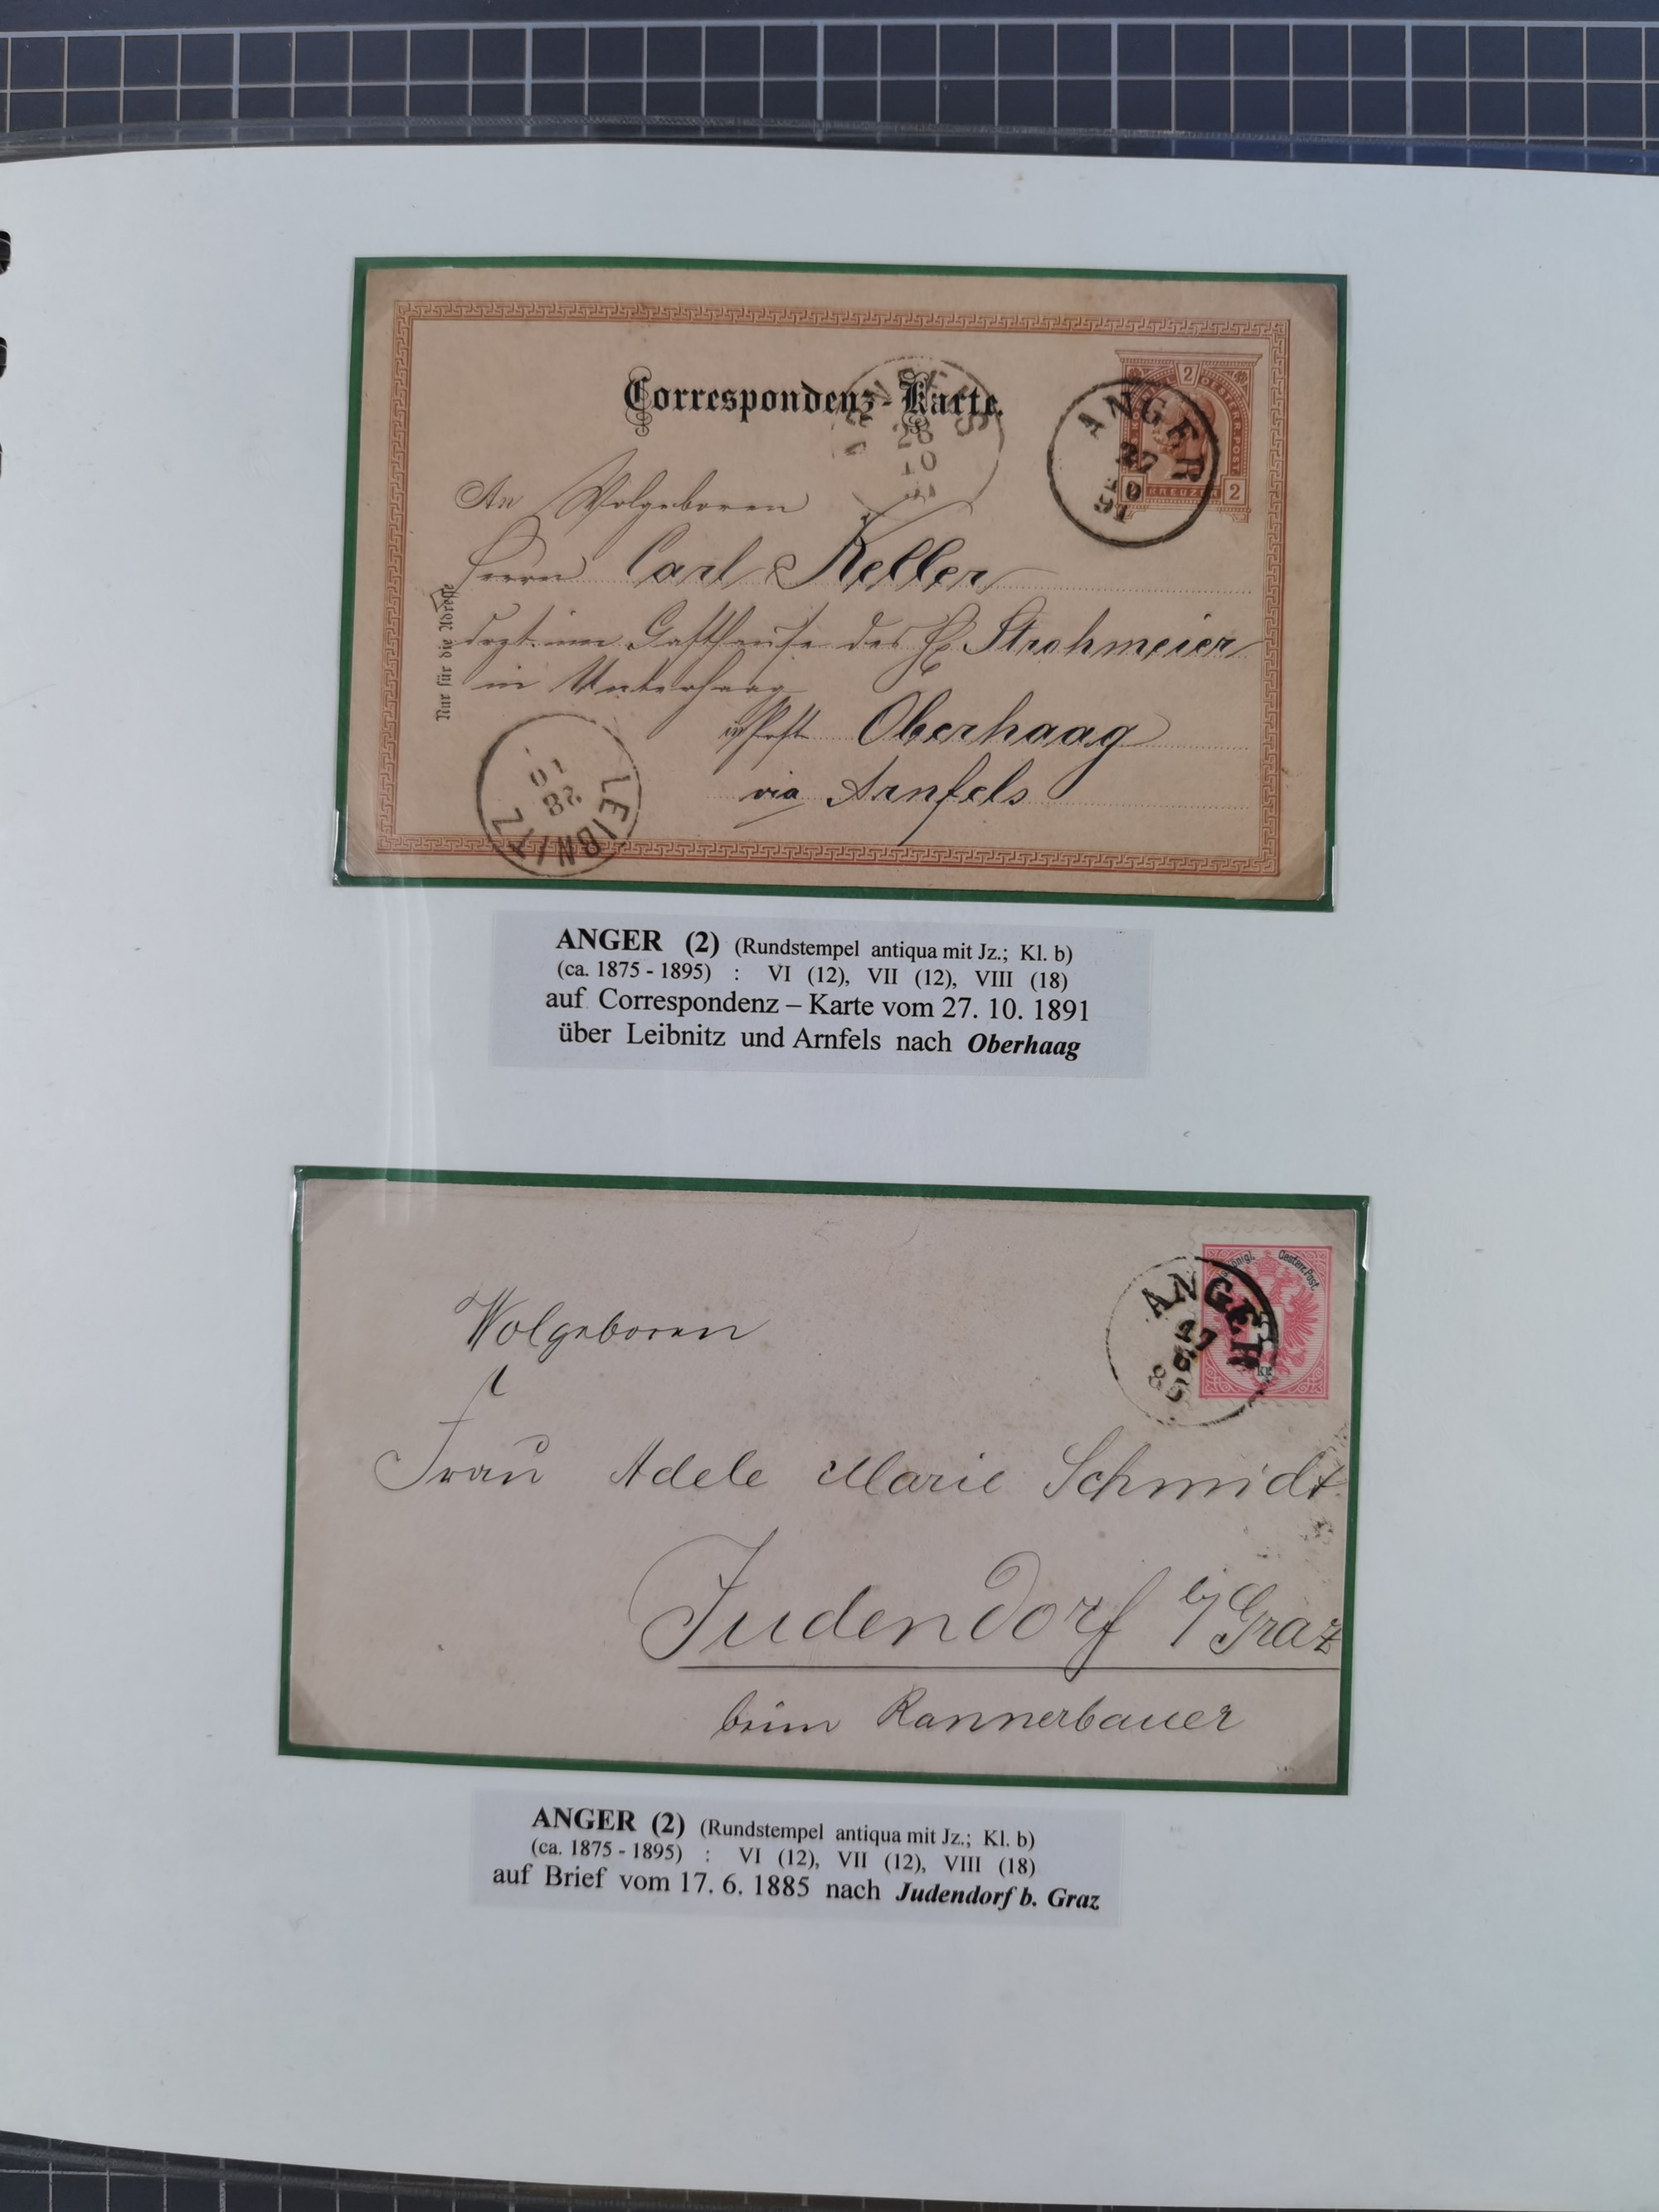 Correspondenz-Karte.
2
OESTERR. POST
ARNFELS
28
10
ANGER
27
10
91
2 KREUZER 2
An Wolgeboren
Herrn Carl Keller
dzt. im Gasthause des H. Strohmeier
in Unterhaag
Post Oberhaag
via Arnfels
Nur für die Adresse
LEIBNITZ
28
10
ANGER (2) (Rundstempel antiqua mit Jz.; Kl. b)
(ca. 1875 - 1895) : VI (12), VII (12), VIII (18)
auf Correspondenz – Karte vom 27. 10. 1891
über Leibnitz und Arnfels nach Oberhaag
königl. Oesterr. Post
ANGER
6
85
kr
Wolgeboren
Frau Adele Marie Schmidt
Judendorf b/Graz
beim Rannerbauer
ANGER (2) (Rundstempel antiqua mit Jz.; Kl. b)
(ca. 1875 - 1895) : VI (12), VII (12), VIII (18)
auf Brief vom 17. 6. 1885 nach Judendorf b. Graz